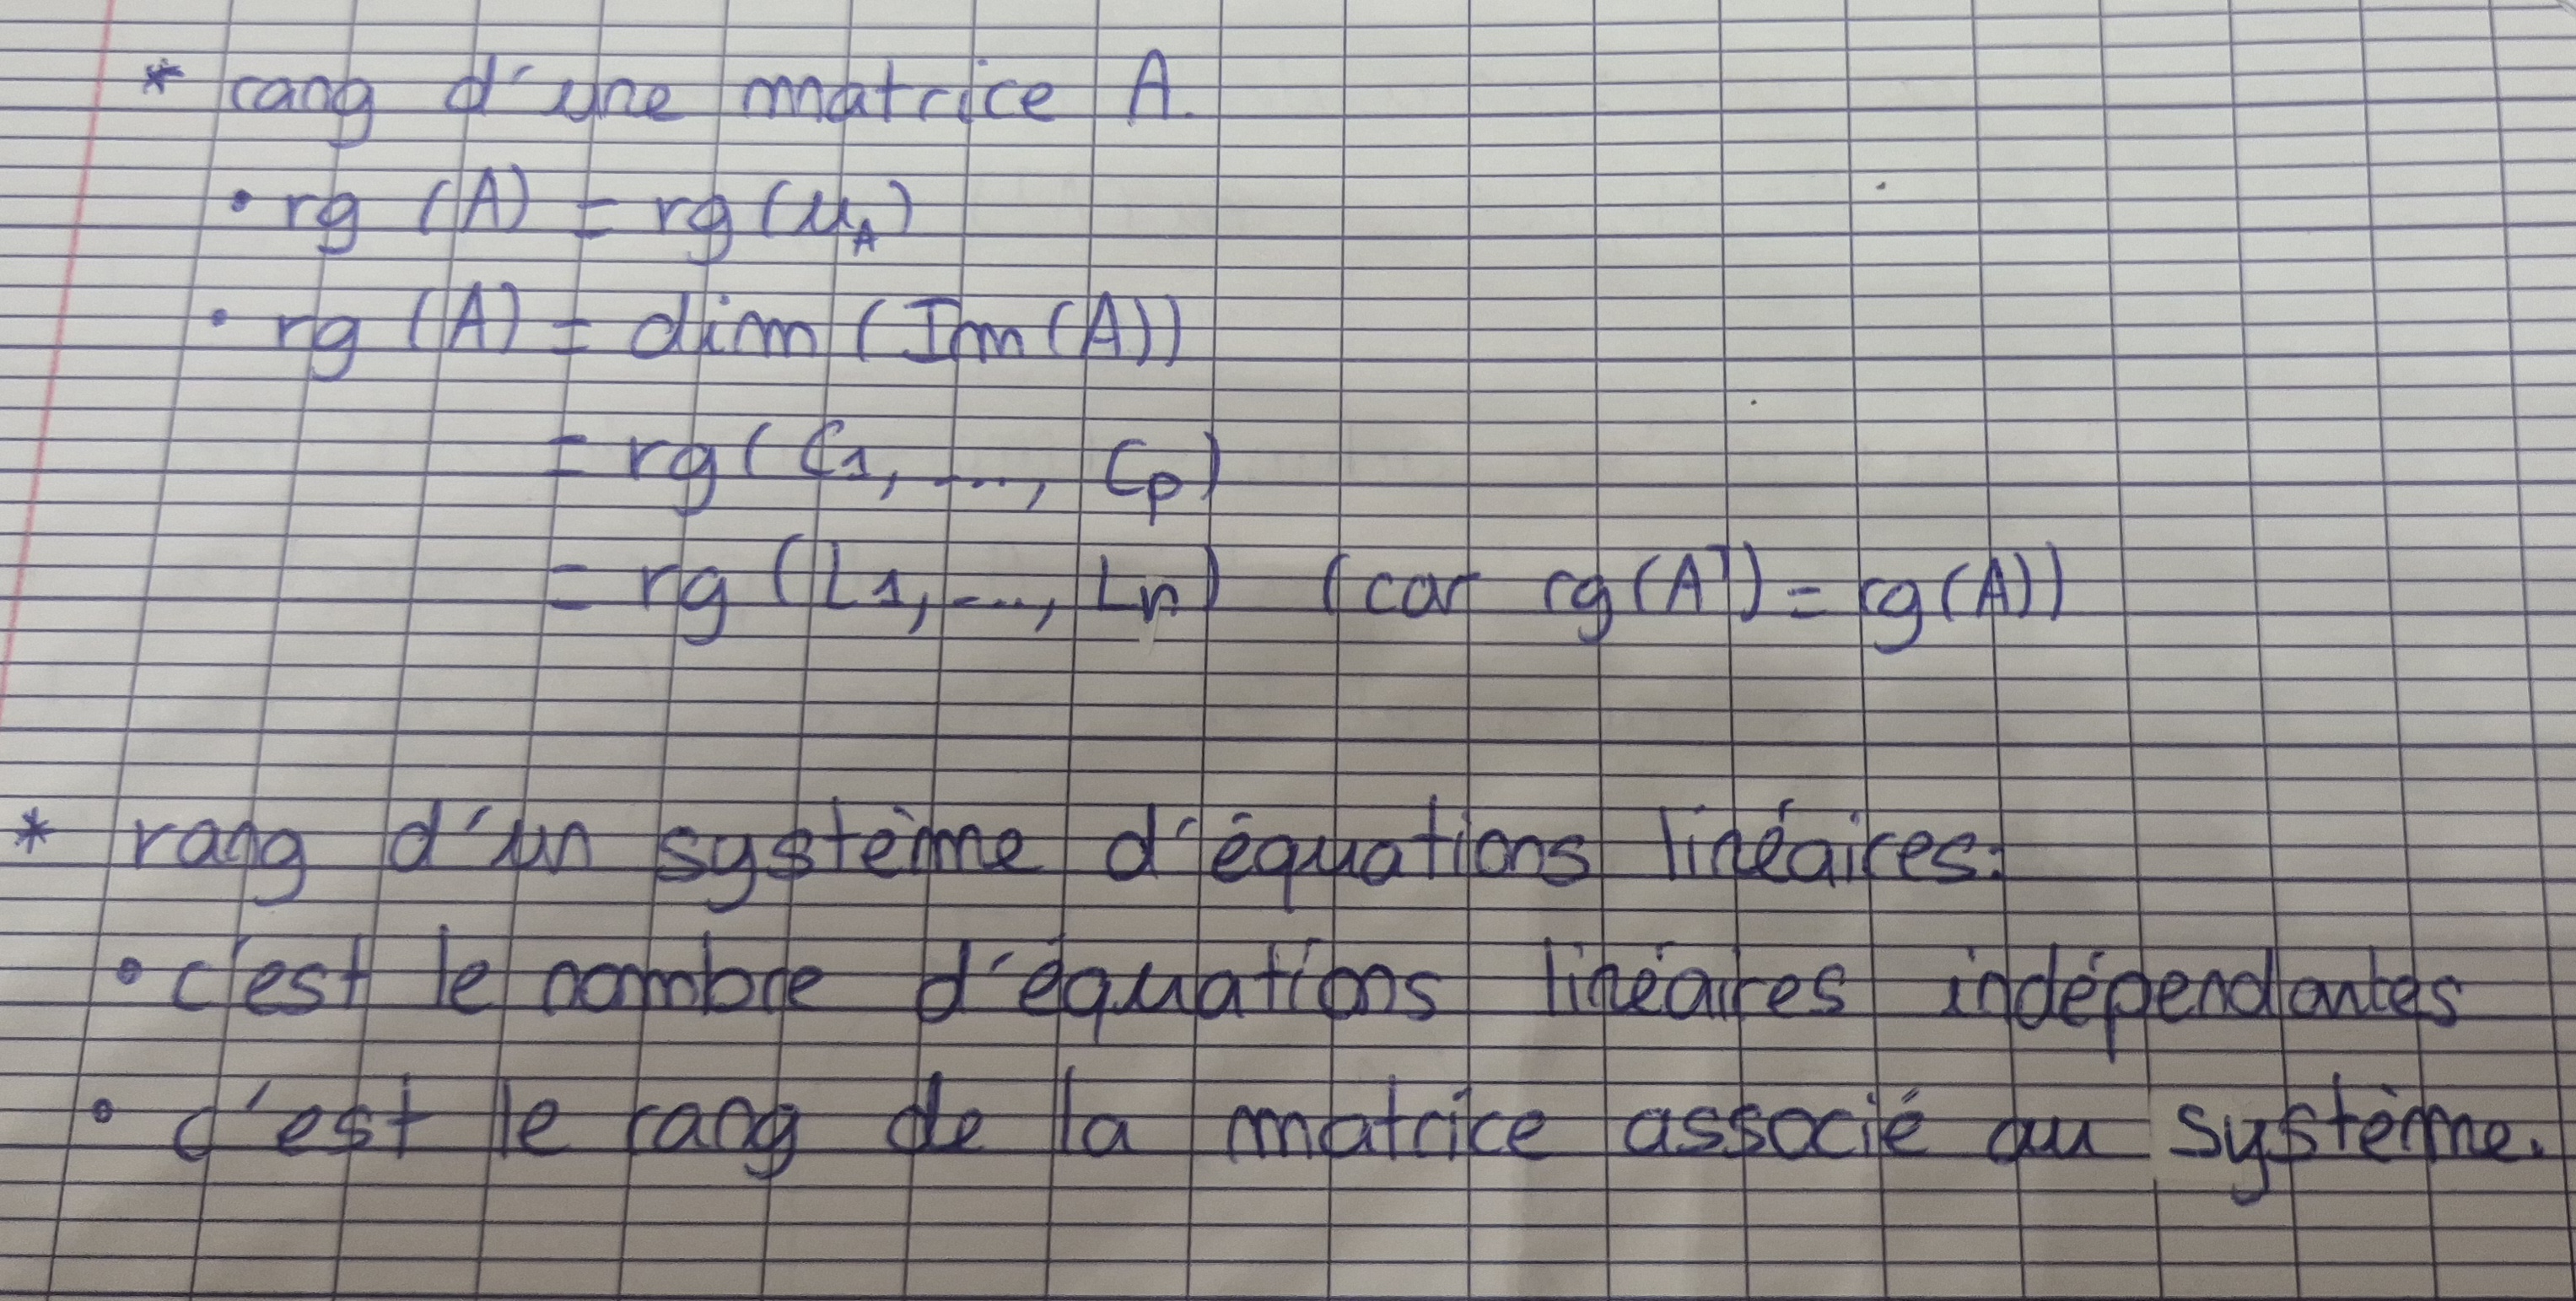 * rang d'une matrice A.
• rg (A) = rg (u_A)
• rg (A) = dim (Im (A))
= rg (C₁, ..., Cp)
= rg (L₁, ..., Ln) (car rg(Aᵀ) = rg(A))
* rang d'un système d'équations linéaires:
• c'est le nombre d'équations linéaires indépendantes
• c'est le rang de la matrice associé au système.